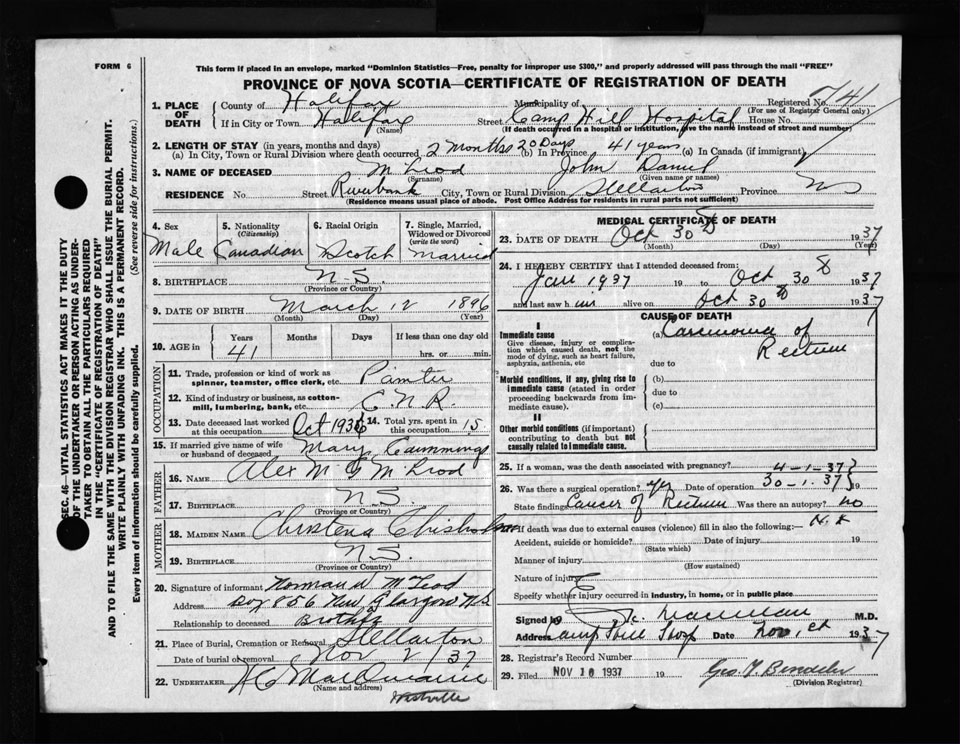 FORM 6
This form if placed in an envelope, marked "Dominion Statistics—Free, penalty for improper use $300," and properly addressed will pass through the mail "FREE"
PROVINCE OF NOVA SCOTIA—CERTIFICATE OF REGISTRATION OF DEATH
1. PLACE OF DEATH County of Halifax Municipality of Registered No. 741
(For use of Registrar General only)
If in City or Town Halifax Street Camp Hill Hospital House No.
(Name) (If death occurred in a hospital or institution, give the name instead of street and number)
2. LENGTH OF STAY (in years, months and days)
(a) In City, Town or Rural Division where death occurred 2 months 20 Days (b) In Province 41 years (a) In Canada (if immigrant)
3. NAME OF DECEASED McLeod John Daniel
(Surname) (Given name or names)
RESIDENCE No. Street Riverbank City, Town or Rural Division Stellarton Province NS
(Residence means usual place of abode. Post Office Address for residents in rural parts not sufficient)
4. Sex 5. Nationality (Citizenship) 6. Racial Origin 7. Single, Married, Widowed or Divorced (write the word)
Male Canadian Scotch Married
8. BIRTHPLACE N.S.
(Province or Country)
9. DATE OF BIRTH March 12 1896
(Month) (Day) (Year)
10. AGE in Years Months Days If less than one day old
41 hrs. or min.
OCCUPATION
11. Trade, profession or kind of work as spinner, teamster, office clerk, etc. Painter
12. Kind of industry or business, as cotton-mill, lumbering, bank, etc. C.N.R.
13. Date deceased last worked at this occupation Oct 1936 14. Total yrs. spent in this occupation 15
15. If married give name of wife or husband of deceased Mary Cummings
FATHER
16. NAME Alex McG McLeod
17. BIRTHPLACE N.S.
(Province or Country)
MOTHER
18. MAIDEN NAME Christena Chisholm
19. BIRTHPLACE N.S.
(Province or Country)
20. Signature of informant Norman W McLeod
Address Box 856 New Glasgow N.S
Relationship to deceased Brother
21. Place of Burial, Cremation or Removal Stellarton
Date of burial or removal Nov 2 37
22. UNDERTAKER
(Name and address)
Westville
MEDICAL CERTIFICATE OF DEATH
23. DATE OF DEATH Oct 30th 1937
(Month) (Day) (Year)
24. I HEREBY CERTIFY that I attended deceased from:
Jan 1937 19 to Oct 30th 1937
and last saw him alive on Oct 30th 1937
CAUSE OF DEATH
I
Immediate cause
Give disease, injury or complication which caused death, not the mode of dying, such as heart failure, asphyxia, asthenia, etc
(a) Carcinoma of Rectum
due to
Morbid conditions, if any, giving rise to immediate cause (stated in order proceeding backwards from immediate cause).
(b)
due to
(c)
II
Other morbid conditions (if important) contributing to death but not causally related to immediate cause.
25. If a woman, was the death associated with pregnancy?
4-1-37
26. Was there a surgical operation? yes Date of operation 30-1-37 19
State findings Cancer of Rectum Was there an autopsy? no
27. If death was due to external causes (violence) fill in also the following:—
Accident, suicide or homicide? Date of injury 19
(State which)
Manner of injury
(How sustained)
Nature of injury
Specify whether injury occurred in industry, in home, or in public place
Signed by M.D.
Address Camp Hill Hosp Date Nov, 1st 1937
28. Registrar's Record Number
29. Filed NOV 10 1937 19
(Division Registrar)
SEC. 46—VITAL STATISTICS ACT MAKES IT THE DUTY OF THE UNDERTAKER OR PERSON ACTING AS UNDERTAKER TO OBTAIN ALL THE PARTICULARS REQUIRED IN THE "CERTIFICATE OF REGISTRATION OF DEATH" AND TO FILE THE SAME WITH THE DIVISION REGISTRAR WHO SHALL ISSUE THE BURIAL PERMIT.
WRITE PLAINLY WITH UNFADING INK. THIS IS A PERMANENT RECORD.
Every item of information should be carefully supplied. (See reverse side for instructions.)